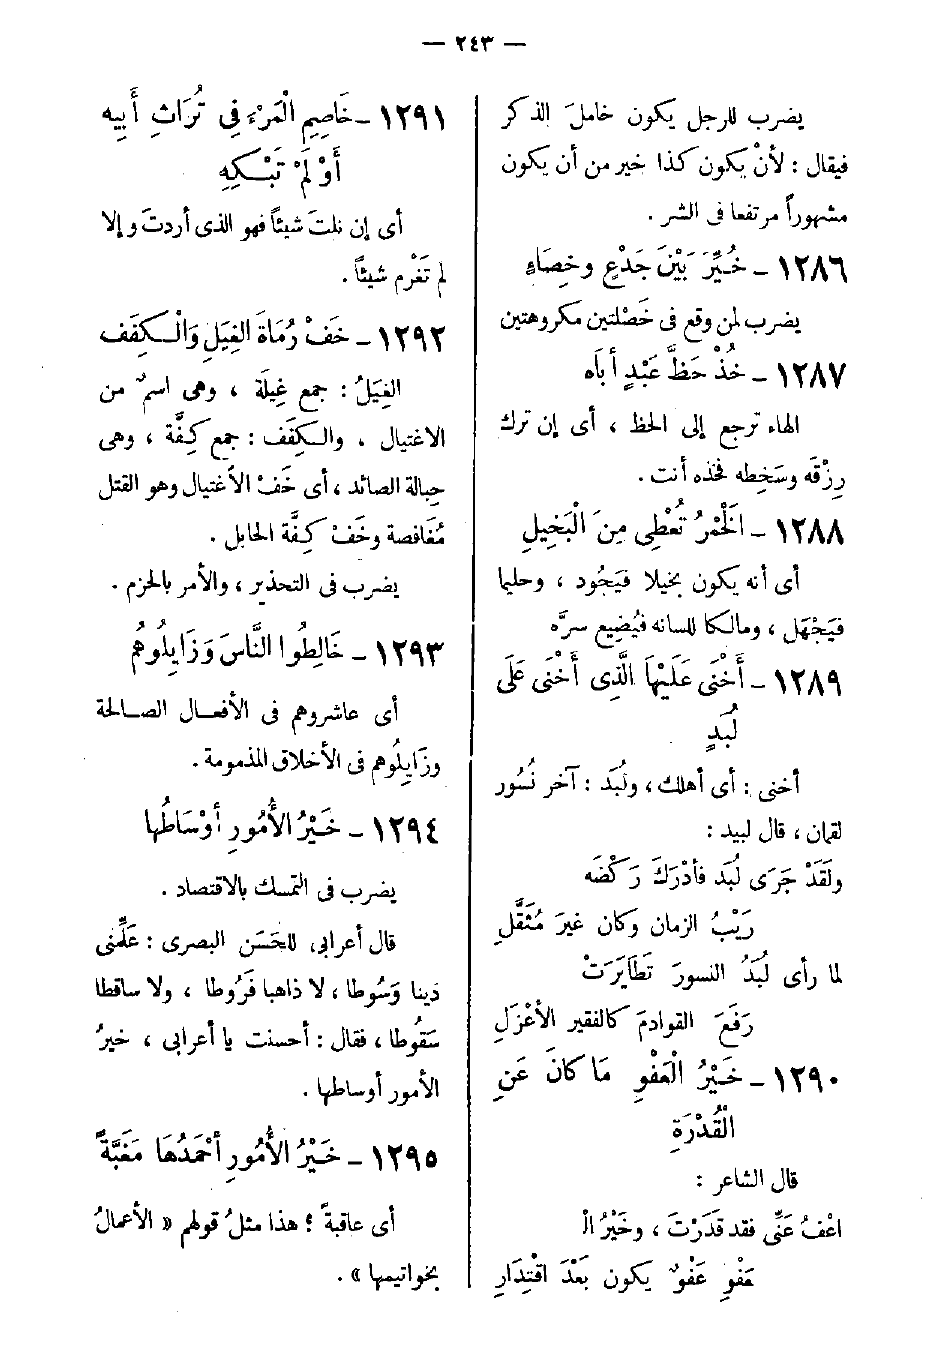 — ٢٤٣ —
يضرب للرجل يكون خاملَ الذكر
فيقال : لأنْ يكون كذا خير من أن يكون
مشهوراً مرتفعا فى الشر .
١٢٨٦ – خُيِّرَ بَيْنَ جَدْعٍ وخِصَاءٍ
يضرب لمن وقع فى خَصْلتين مكروهتين
١٢٨٧ – خُذْ حَظَّ عَبْدٍ أَبَاه
الهاء ترجع إلى الحظ ، أى إن ترك
رِزْقَه وسَخِطه فخذه أنت .
١٢٨٨ – الْخَمْرُ تُعْطِى مِنَ الْبَخِيلِ
أى أنه يكون بخيلا فيَجُود ، وحليما
فيَجْهَل ، ومالكا للسانه فيُضِيع سرَّه
١٢٨٩ – أَخْنَى عَلَيْهَا الَّذِى أَخْنَى عَلَى
لُبَدٍ
أخنى : أى أهلك ، ولُبَد : آخر نُسُور
لقمان ، قال لبيد :
ولَقَدْ جَرَى لُبَد فأدْرَكَ رَكْضَه
رَيْبُ الزمان وكان غيرَ مُثَقَّلِ
لما رأى لُبَدُ النسورَ تَطَايَرَتْ
رَفَعَ القوادمَ كالفقير الأعْزَلِ
١٢٩٠ – خَيْرُ الْعَفْوِ مَا كَانَ عَنِ
الْقُدْرَةِ
قال الشاعر :
اعْفُ عَنِّى فقد قدَرْتَ ، وخَيْرُ الْ
عَفْوِ عَفْوٌ يكون بَعْدَ اقْتِدَارِ
١٢٩١ – خَاصِمِ الْمَرْءَ فِى تُرَاثِ أَبِيهِ
أَوْ لَمْ تَبْكِهِ
أى إن نلتَ شيئاً فهو الذى أردتَ وإلا
لم تَغْرم شيئاً .
١٢٩٢ – خَفْ رُمَاةَ الغِيَلِ وَالْكِفَفِ
الغِيَلُ : جمع غِيلَة ، وهى اسمٌ من
الاغتيال . والكِفَف : جمع كِفَّة ، وهى
حِبالة الصائد ، أى خَفْ الأغتيال وهو القتل
مُغَافصة وخَفْ كِفَّة الحابل .
يضرب فى التحذير ، والأمر بالحزم .
١٢٩٣ – خَالِطُوا النَّاسَ وَزَايِلُوهُم
أى عاشروهم فى الأفعال الصالحة
وزَايِلُوهم فى الأخلاق المذمومة .
١٢٩٤ – خَيْرُ الأُمُورِ أَوْسَاطُها
يضرب فى التمسك بالاقتصاد .
قال أعرابى للحَسَن البصرى : عَلِّمْنى
دَينا وَسُوطا ، لا ذاهبا فَرُوطا ، ولا ساقطا
سَقُوطا ، فقال : أحسنت يا أعرابى ، خيرُ
الأمور أوساطها .
١٢٩٥ – خَيْرُ الأُمُورِ أَحْمَدُهَا مَغَبَّةً
أى عاقبةً ؛ هذا مثلُ قولهم « الأعمالُ
بخواتيمها » .